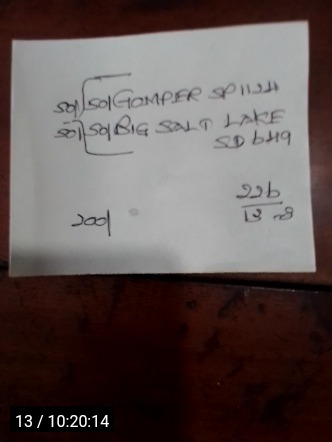 501 501 GOMPER SP 1124
501 501 BIG SALT LAKE
SD 649
226
13
2001
13 / 10:20:14